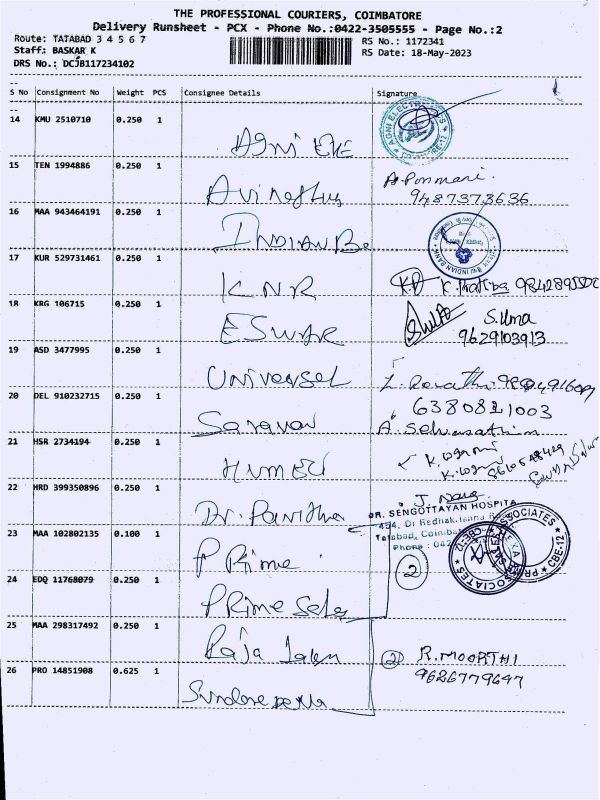 THE PROFESSIONAL COURIERS, COIMBATORE
Delivery Runsheet - PCX - Phone No.:0422-3505555 - Page No.:2
Route: TATABAD 3 4 5 6 7
Staff: BASKAR K
DRS No.: DCJB117234102
RS No.: 1172341
RS Date: 18-May-2023
S No Consignment No Weight PCS Consignee Details Signature
14 KMU 2510710 0.250 1
Agni Ele
AGNI ELECT
15 TEN 1994886 0.250 1
A. Ponmani.
9487373636
16 MAA 943464191 0.250 1
INDIAN Ba
INDIAN BANK
17 KUR 529731461 0.250 1
KNR
18 KRG 106715 0.250 1
ESWAR
S.Uma
9629103913
19 ASD 3477995 0.250 1
Universal
20 DEL 910232715 0.250 1
Saravan
6380821003
21 HSR 2734194 0.250 1
22 HRD 399350896 0.250 1
Dr. Pavithra
DR. SENGOTTAYAN HOSPITA
Tatabad, Coimba
Phone : 042
23 MAA 102802135 0.100 1
P Prime
2
ASSOCIATES
CBE-12
24 EDQ 11768079 0.250 1
PRime Sales
25 MAA 298317492 0.250 1
Raja
2 R.MOORTHI
9626779647
26 PRO 14851908 0.625 1